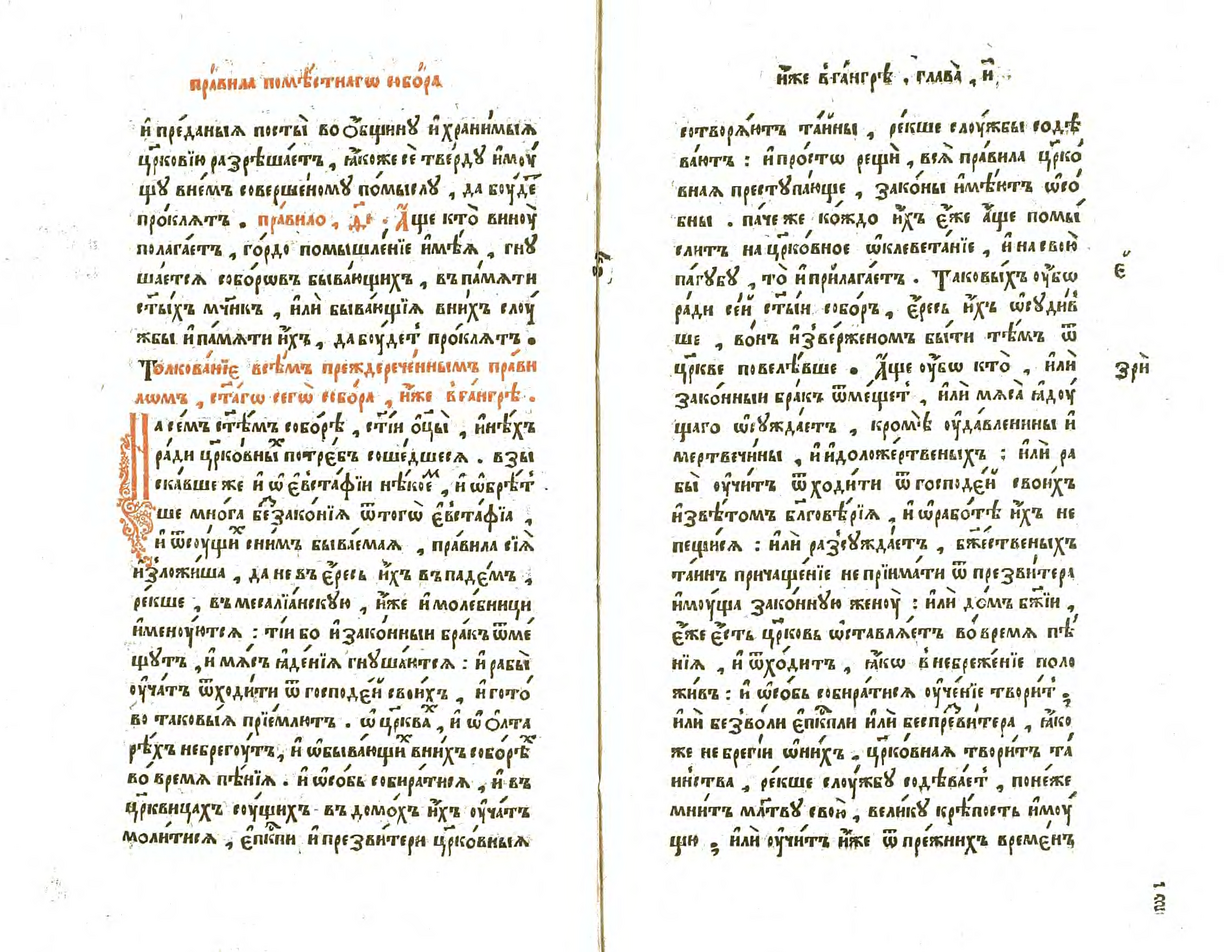 пра́вила помѣ́стнагѡ собо́ра
и҆ пре́даныѧ посты̀ во ѻ҆́бщинꙋ и҆ хранѝмыѧ
цр҃ковїю разрѣша́етъ, ꙗ҆́коже сѐ тве́рдꙋ и҆моу́
щꙋ вне́мъ соверше́номꙋ по́мыслꙋ, да бꙋ́де
про́клѧтъ. пра́вило, А҆́ще кто̀ винꙋ̀
полага́етъ, го́рдо помышле́нїе и҆мѣ́ѧ, гнꙋ
ша́етсѧ собо́рѡвъ быва́ющихъ, въ па́мѧти
ст҃ы́хъ мч҃нкъ, и҆лѝ быва́ющїѧ вни́хъ слоу́
жбы и҆ па́мѧти и҆́хъ, да бꙋ́детъ про́клѧтъ.
Толкова́нїе всѣ́мъ преждерече́ннымъ пра́ви
лѡмъ, ст҃а́гѡ сегѡ̀ собо́ра, и҆́же в га́нгрѣ.
На се́мъ ст҃ѣ́мъ собо́рѣ, ст҃і́и ѻ҆ц҃ы̀, и҆нѣ́хъ
ра́ди цр҃ко́вных потре́бъ соше́дшесѧ. взы
ска́вше же и҆ ѡ҆ є҆вста́фїи нѣ́коем, и҆ ѡ҆брѣ́т
ше мно́га беззако́нїѧ ѿ того̀ є҆вста́фїа,
и҆ ѿ соу́щих сни́мъ быва́емаѧ, пра́вила сїѧ̀
и҆зложи́ша, да не въ є҆́ресь и҆́хъ въпаде́мъ,
ре́кше, въ месалїа́нскꙋю, и҆́же и҆ моле́бницы
и҆менꙋ́ютсѧ: ті́и бо и҆ зако́нныи бра́къ ѿме́
щꙋтъ, и҆ мѧ́съ ꙗ҆де́нїѧ гнꙋша́ютсѧ: и҆ рабы̀
оу҆ча́тъ ѿходи́ти ѿ госпо́дей свои́хъ, и҆ гото́
во таковы́ѧ прїе́млютъ. ѡ҆ цр҃ква́х, и҆ ѡ҆ ѻ҆лта
рѣ́хъ небрегꙋ́тъ, и҆ ѡ҆ быва́ющих вни́хъ собо́рѣх
во вре́мѧ пѣ́нїѧ. и҆ ѡ҆со́бь собира́тисѧ, и҆ въ
цр҃кви́цахъ соу́щихъ въ домо́хъ и҆́хъ оу҆ча́тъ
моли́тисѧ, є҆пк҃пи и҆ презви́тери цр҃ко́вныѧ
и҆́же в га́нгрѣ, глава̀, и҃,
сотворѧ́ютъ та́йны, ре́кше слоу́жбы содѣ
ва́ютъ: и҆ про́стѡ рещѝ, всѧ̀ пра́вила цр҃ко́
внаѧ престꙋпа́юще, зако́ны и҆мѣ́ютъ ѡ҆со́
бны. па́че же ко́ждо и҆́хъ є҆́же а҆́ще помы́
слитъ на цр҃ко́вное ѡ҆клевета́нїе, и҆ на свою̀
па́гꙋбꙋ, то̀ и҆ прилага́етъ. Таковы́хъ оу҆́бѡ
ра́ди се́й ст҃ы́и собо́ръ, є҆́ресь и҆́хъ ѡ҆сꙋди́в
ше, во́нъ и҆зве́рженомъ бы́ти тѣ́мъ ѿ
цр҃кве повелѣ́вше. А҆́ще оу҆́бѡ кто̀, и҆лѝ
зако́нныи бра́къ ѿме́щет, и҆лѝ мѧ́са ꙗ҆дꙋ́
щаго ѡ҆сꙋжда́етъ, кромѣ̀ оу҆да́вленины и҆
мертвечи́ны, и҆ и҆доложе́ртвеныхъ: и҆лѝ ра
бы̀ оу҆чи́тъ ѿходи́ти ѿ госпо́дей свои́хъ
и҆звѣ́томъ бл҃говѣ́рїѧ, и҆ ѡ҆ рабо́тѣ и҆́хъ не
пещи́сѧ: и҆лѝ разсꙋжда́етъ, бж҃е́ственыхъ
та́инъ причаще́нїе не прїима́ти ѿ презви́тера
и҆мꙋ́ща зако́ннꙋю женꙋ̀: и҆лѝ до́мъ бж҃їи,
є҆́же є҆́сть цр҃ковь ѡ҆ставлѧ́етъ во вре́мѧ пѣ́
нїѧ, и҆ ѿхо́дитъ, ꙗ҆́кѡ в небреже́нїе поло
жи́въ: и҆ ѡ҆со́бь собира́тисѧ оу҆че́нїе твори́т;
и҆лѝ без во́ли є҆пк҃пли и҆лѝ бес пре́звитера, ꙗ҆́ко
же не брегі́и ѡ҆ ни́хъ, цр҃ко́внаѧ твори́тъ та́
инства, ре́кше слоу́жбꙋ содѣва́ет, поне́же
мни́тъ мл҃твꙋ свою̀, вели́кꙋ крѣ́пость и҆мꙋ́
щꙋ; и҆лѝ оу҆чи́тъ и҆́же ѿ пре́жнихъ време́нъ
є҃
зрѝ